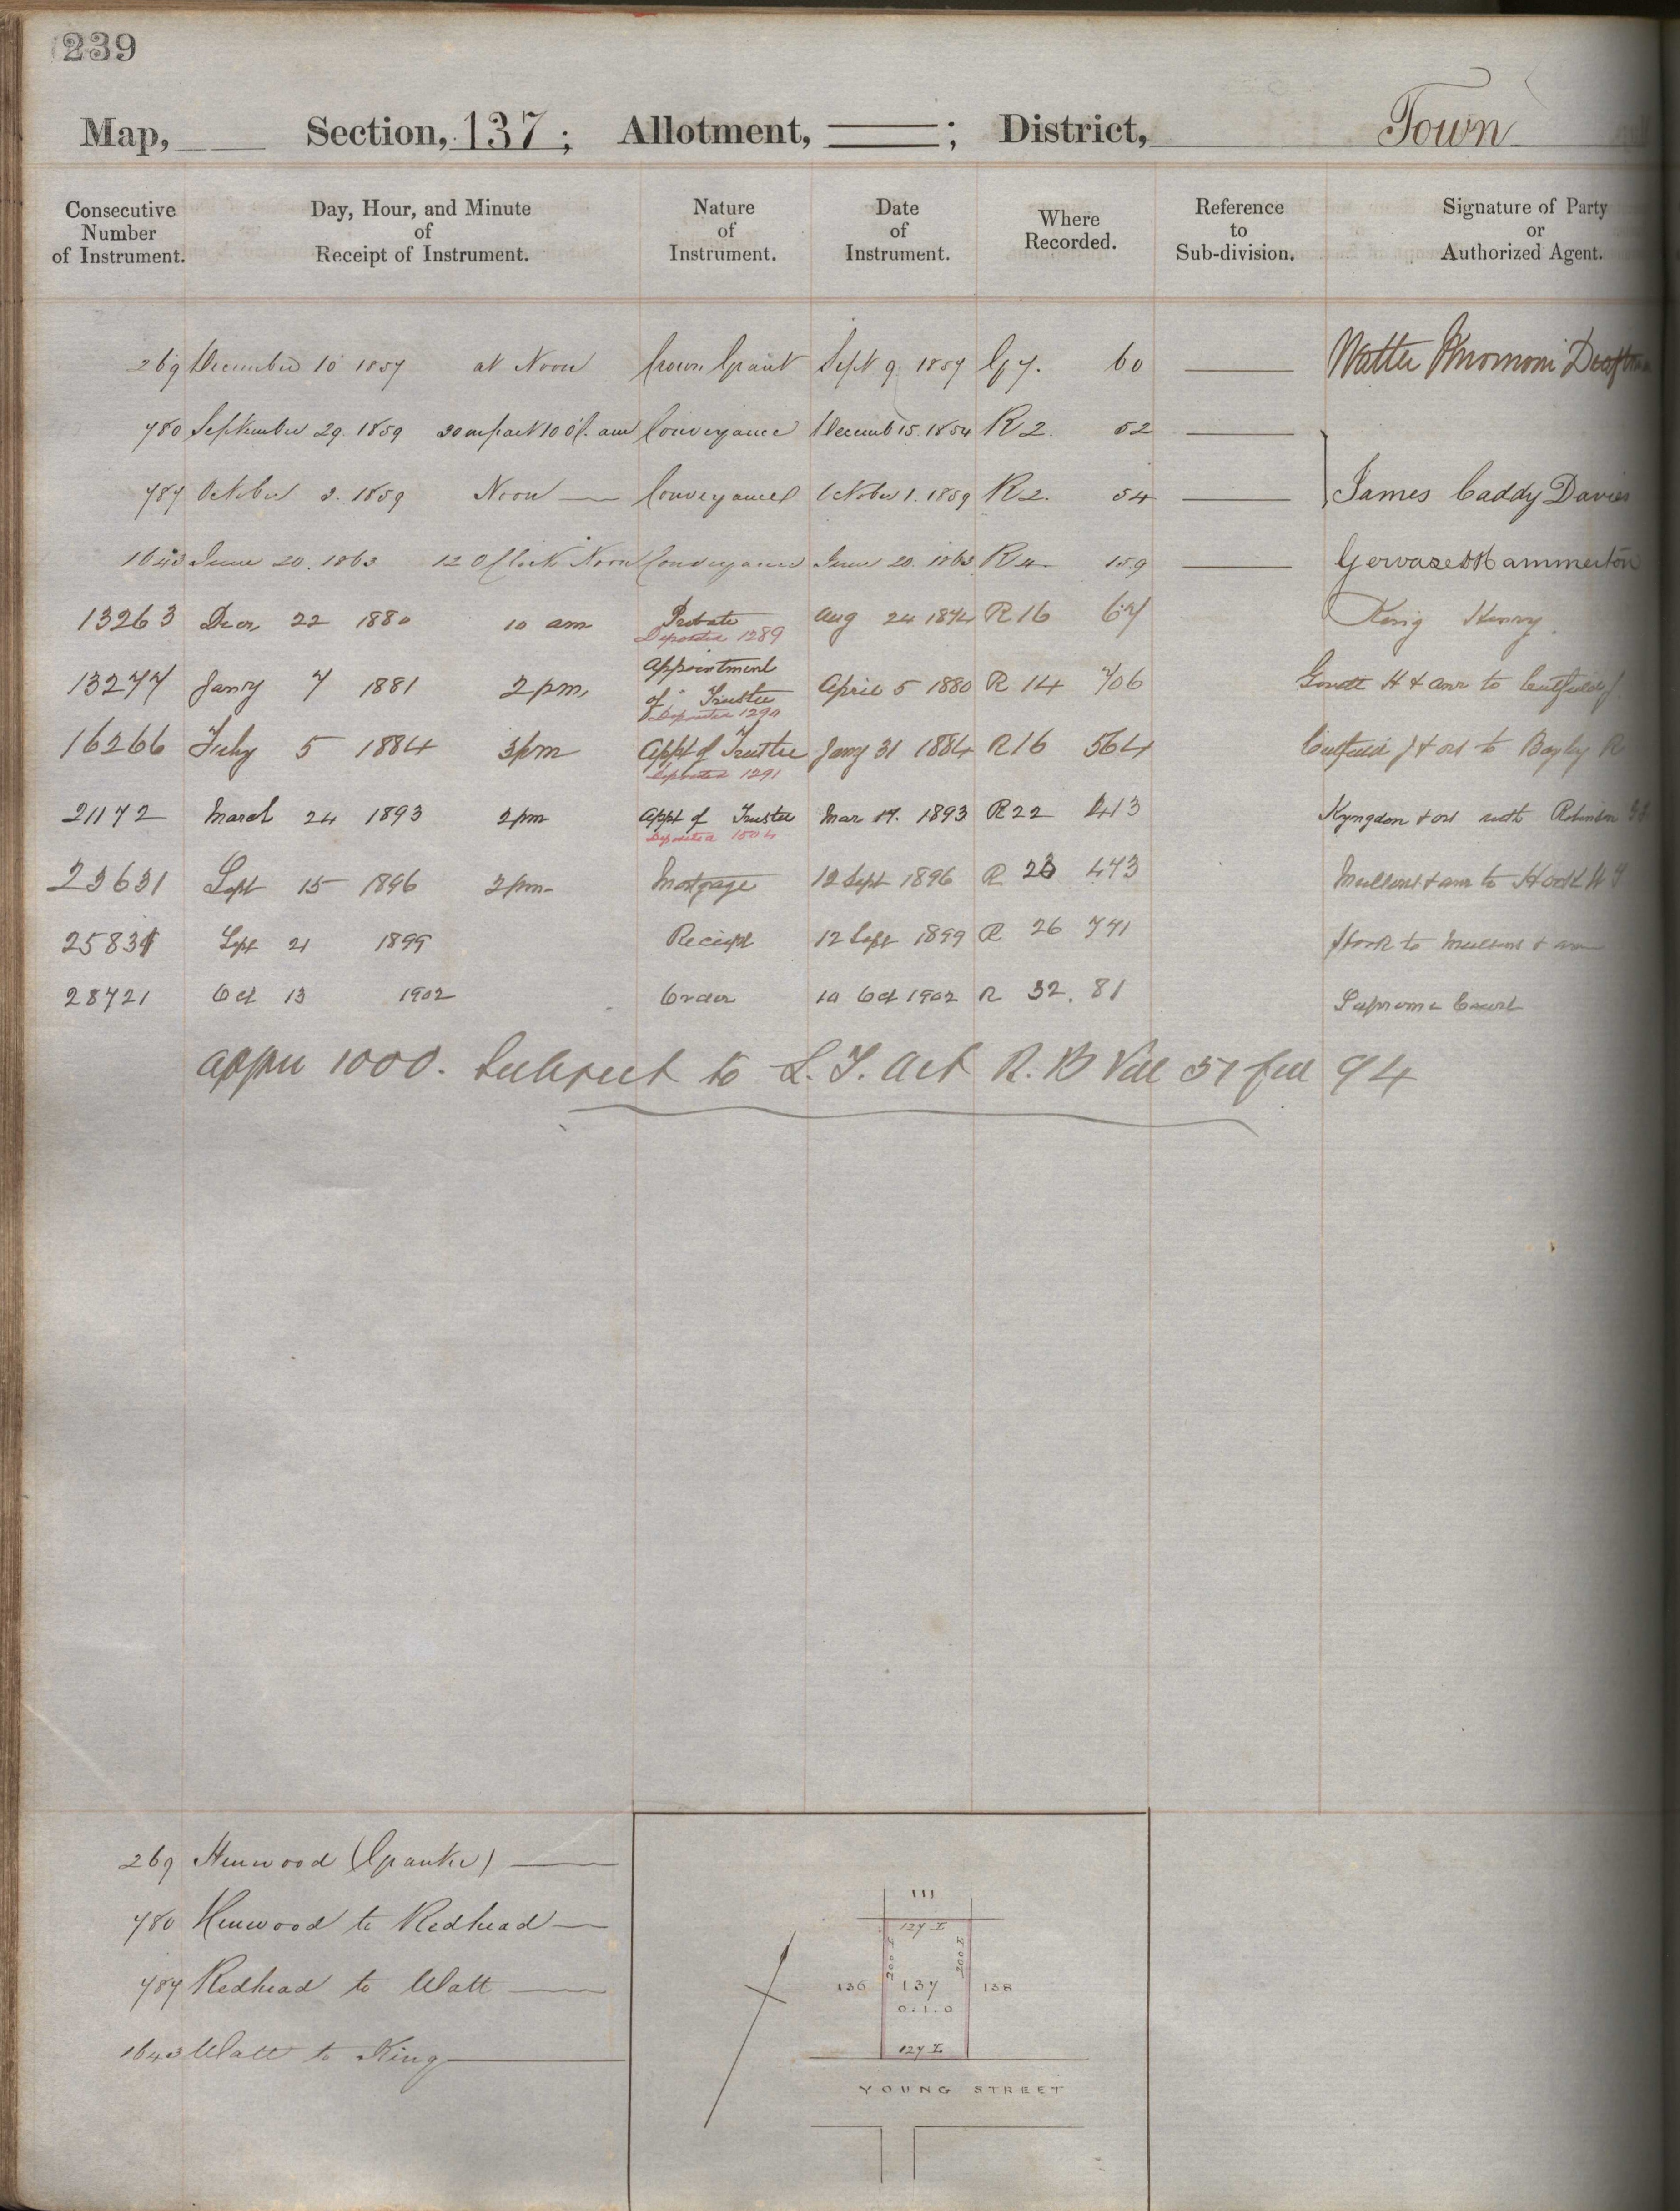 239
Map, Section, 137; Allotment, ; District, Town
Consecutive Number of Instrument. Day, Hour, and Minute of Receipt of Instrument. Nature of Instrument. Date of Instrument. Where Recorded. Reference to Sub-division. Signature of Party or Authorized Agent.
269 December 10 1857 at Noon Crown Grant Sept 9 1857 G 7. 60 Walter
780 September 29. 1859 am Conveyance December 15. 1854 R 2. 52
787 October 3. 1859 Noon Conveyance October 1. 1859 R 2. 54 James Caddy Davies
1643 June 20. 1863 12 O'Clock Noon Conveyance June 20. 1863 R 4. 159 Gervase D Hammerton
13263 Decr 22 1880 10 am Probate Aug 24 1874 R 16 67 King Henry
Deposited 1289
13277 Janry 7 1881 2 pm, Appointment of Trustee April 5 1880 R 14 706 Govett H & anr to
Deposited 1290
16266 Feby 5 1884 3 pm Appt of Trustee Jany 31 1884 R 16 564 J & ors to Bayly R
Deposited 1291
21172 March 24 1893 2 pm Appt of Trustee Mar 17. 1893 R 22 413 Kyngdon & ors with Robinson
Deposited 1504
23631 Sept 15 1896 2 pm Mortgage 12 Sept 1896 R 23 473 & anr to
25831 Sept 21 1899 Receipt 12 Sept 1899 R 26 771 to & anr
28721 Oct 13 1902 Order 10 Oct 1902 R 32. 81 Supreme Court
Appn 1000. Subject to L. T. Act R. B Vol 57 fol 94
269 Henwood (Grantee)
780 Henwood to Redhead
787 Redhead to Watt
1643 Watt to King
111
127 L
200 L
200 L
136 137 138
0.1.0
127 L
YOUNG STREET